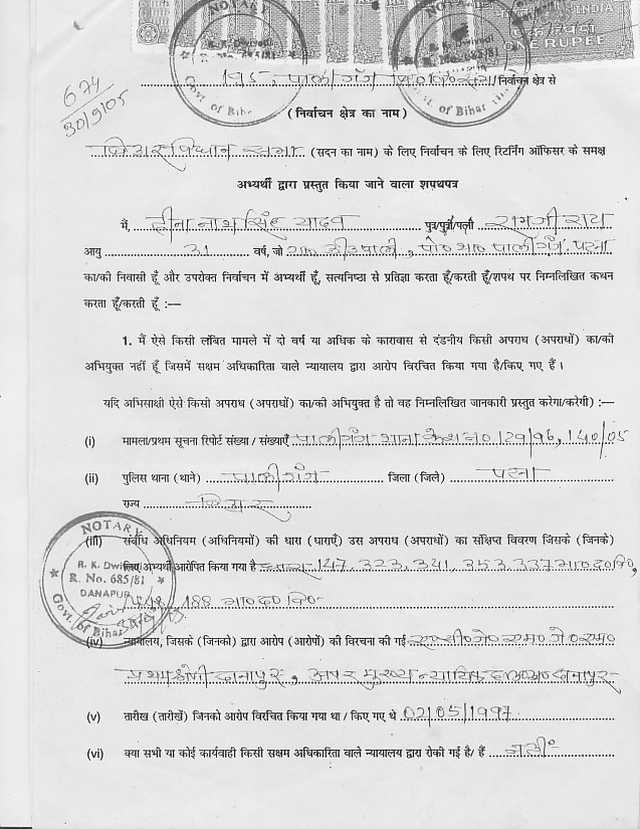 NOTARY
R. K. Dwivedi
R. No. 685/81
Govt. of Bihar
NOTARY
R. K. Dwivedi
R. No. 685/81
Govt. of Bihar
INDIA
RUPEE
674
30/9/05
195, पालीगंज वि०स० निर्वाचन क्षेत्र से
(निर्वाचन क्षेत्र का नाम)
बिहार विधान सभा (सदन का नाम) के लिए निर्वाचन के लिए रिटर्निंग ऑफिसर के समक्ष
अभ्यर्थी द्वारा प्रस्तुत किया जाने वाला शपथपत्र
मैं, दीना नाथ सिंह यादव पुत्र/पुत्री/पत्नी रामजी राय
आयु 31 वर्ष, जो पो० था० पालीगंज, पटना
का/की निवासी हूँ और उपरोक्त निर्वाचन में अभ्यर्थी हूँ, सत्यनिष्ठा से प्रतिज्ञा करता हूँ/करती हूँ/शपथ पर निम्नलिखित कथन
करता हूँ/करती हूँ :—
1. मैं ऐसे किसी लंबित मामले में दो वर्ष या अधिक के कारावास से दंडनीय किसी अपराध (अपराधों) का/की
अभियुक्त नहीं हूँ जिसमें सक्षम अधिकारिता वाले न्यायालय द्वारा आरोप विरचित किया गया है/किए गए हैं ।
यदि अभिसाक्षी ऐसे किसी अपराध (अपराधों) का/की अभियुक्त है तो वह निम्नलिखित जानकारी प्रस्तुत करेगा/करेगी) :—
(i) मामला/प्रथम सूचना रिपोर्ट संख्या / संख्याएँ पालीगंज थाना केश न० 129/96, 140/05
(ii) पुलिस थाना (थाने) पालीगंज जिला (जिले) पटना
राज्य बिहार
(iii) संबंधि अधिनियम (अधिनियमों) की धारा (धाराएँ) उस अपराध (अपराधों) का संक्षिप्त विवरण जिसके (जिनके)
लिए अभ्यर्थी आरोपित किया गया है 147, 323, 341, 353, 337 भा० द० वि०,
188 भा० द० वि०
NOTARY
R. K. Dwivedi
R. No. 685/81
DANAPUR
Govt. of Bihar
(iv) न्यायालय, जिसके (जिनको) द्वारा आरोप (आरोपों) की विरचना की गई
प्रथम श्रेणी दानापुर, अपर मुख्य न्यायिक दानापुर
(v) तारीख (तारीखें) जिनको आरोप विरचित किया गया था / किए गए थे 02/05/1997
(vi) क्या सभी या कोई कार्यवाही किसी सक्षम अधिकारिता वाले न्यायालय द्वारा रोकी गई है/ हैं नहीं